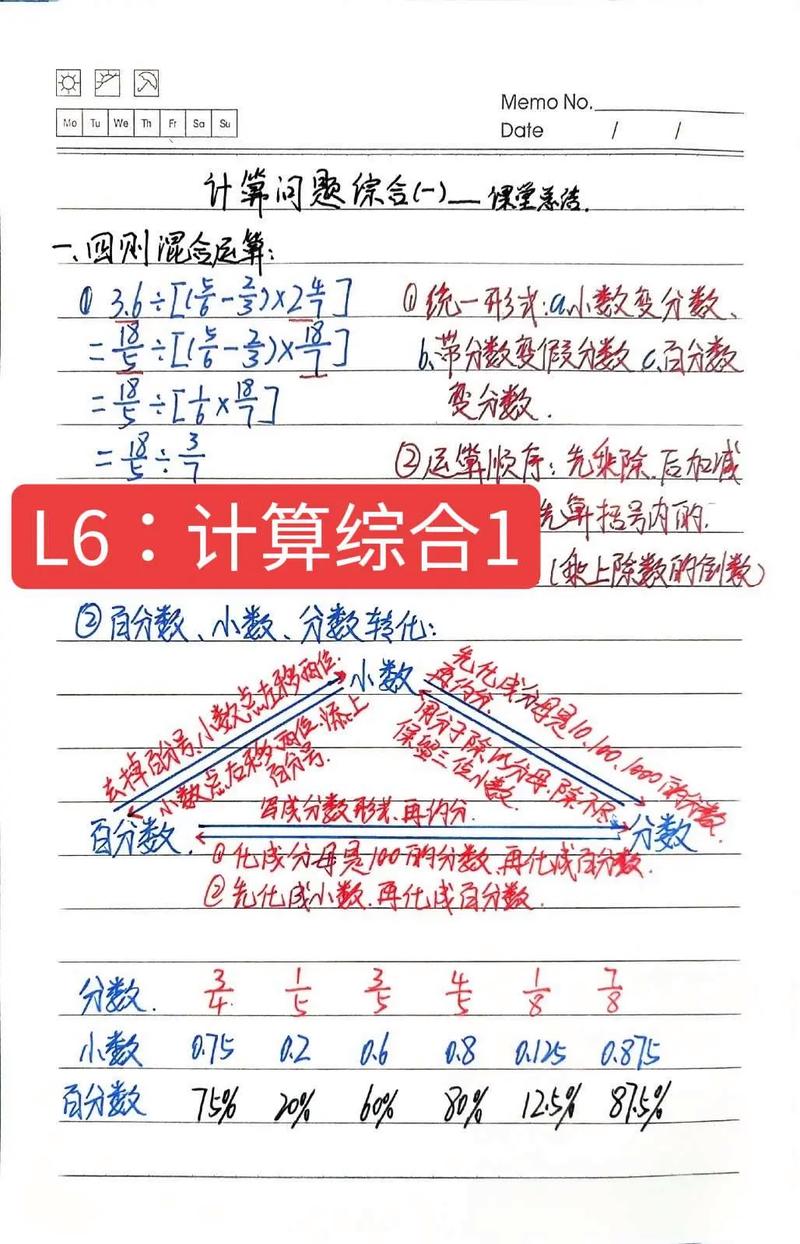 Memo No.
Mo Tu We Th Fr Sa Su
Date / /
计算问题综合(一)—课堂总结.
一、四则混合运算:
① 3.6÷[(5/6-2/3)×2 4/7]
=18/5÷[(5/6-2/3)×18/7]
=18/5÷[1/6×18/7]
=18/5÷3/7
①统一形式:a.小数变分数、
b.带分数变假分数 c.百分数
变分数.
②运算顺序:先乘除.后加减
先算括号内的.
(乘上除数的倒数)
L6：计算综合1
②百分数、小数、分数转化:
小数
去掉百分号,小数点左移两位.
小数点右移两位.添上
百分号.
先化成分母是10,100,1000的分数.
再约分.
用分子除以分母,除不尽
保留三位小数.
百分数.
写成分数形式.再约分.
分数
①化成分母是100的分数.再化成百分数.
②先化成小数.再化成百分数.
分数. 3/4 1/5 3/5 4/5 1/8 7/8
小数 0.75 0.2 0.6 0.8 0.125 0.875
百分数 75% 20% 60% 80% 12.5% 87.5%